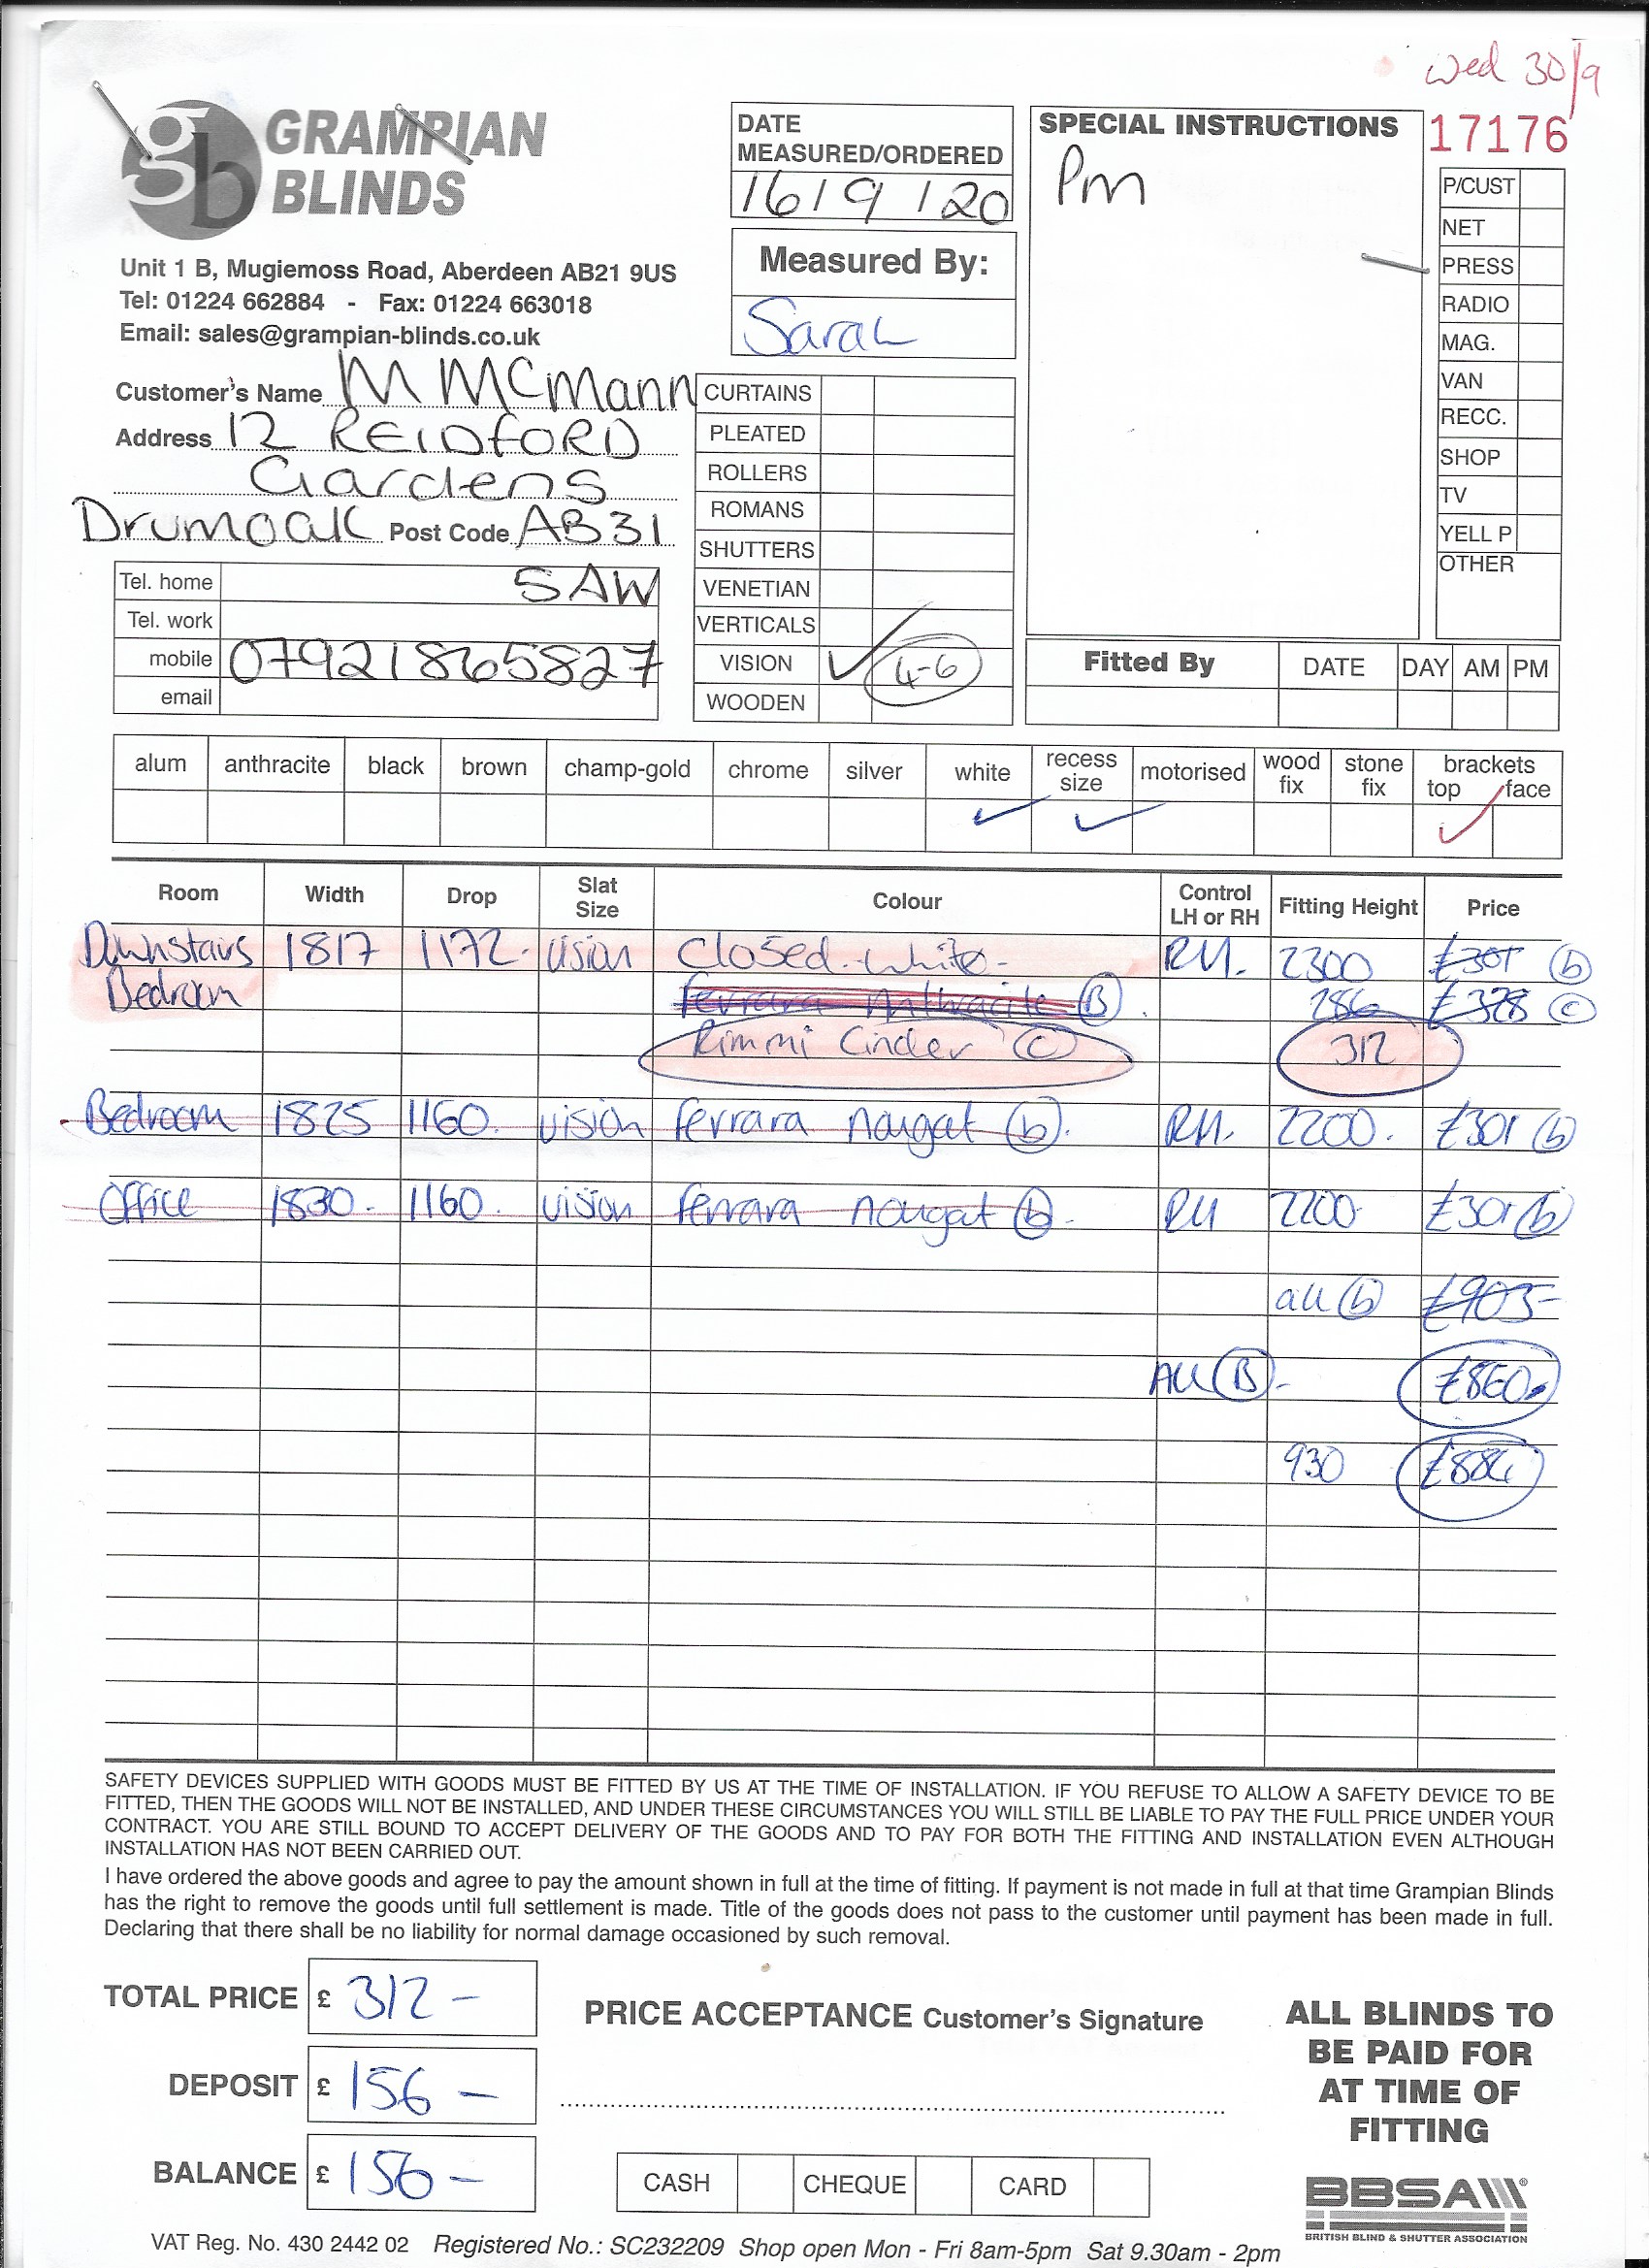 Wed 30/9
GRAMPIAN
BLINDS
Unit 1 B, Mugiemoss Road, Aberdeen AB21 9US
Tel: 01224 662884 - Fax: 01224 663018
Email: sales@grampian-blinds.co.uk
DATE
MEASURED/ORDERED
16 / 9 / 20
Measured By:
Sarah
SPECIAL INSTRUCTIONS
Pm
17176
P/CUST
NET
PRESS
RADIO
MAG.
VAN
RECC.
SHOP
TV
YELL P
OTHER
Customer's Name M McMann
Address 12 REIDFORD
Gardens
Drumoak Post Code AB31
5AW
Tel. home
Tel. work
mobile 07921865827
email
CURTAINS
PLEATED
ROLLERS
ROMANS
SHUTTERS
VENETIAN
VERTICALS
VISION ✓ 4-6
WOODEN
Fitted By DATE DAY AM PM
alum anthracite black brown champ-gold chrome silver white recess size motorised wood fix stone fix brackets top face
✓ ✓ ✓
Room Width Drop Slat Size Colour Control LH or RH Fitting Height Price
Downstairs 1817 1172. vision Closed-white- RH. 2300 £301 (b)
Bedroom Ferrara Anthracite (B) 286 £328 (c)
Rimmi Cinder (C) 312
Bedroom 1825 1160. vision ferrara nougat (b). RH. 2200. £301 (b)
Office 1830. 1160. vision ferrara nougat (b). RH 2200 £301 (b)
all (b) £903-
All (B). £860
930 £884
SAFETY DEVICES SUPPLIED WITH GOODS MUST BE FITTED BY US AT THE TIME OF INSTALLATION. IF YOU REFUSE TO ALLOW A SAFETY DEVICE TO BE
FITTED, THEN THE GOODS WILL NOT BE INSTALLED, AND UNDER THESE CIRCUMSTANCES YOU WILL STILL BE LIABLE TO PAY THE FULL PRICE UNDER YOUR
CONTRACT. YOU ARE STILL BOUND TO ACCEPT DELIVERY OF THE GOODS AND TO PAY FOR BOTH THE FITTING AND INSTALLATION EVEN ALTHOUGH
INSTALLATION HAS NOT BEEN CARRIED OUT.
I have ordered the above goods and agree to pay the amount shown in full at the time of fitting. If payment is not made in full at that time Grampian Blinds
has the right to remove the goods until full settlement is made. Title of the goods does not pass to the customer until payment has been made in full.
Declaring that there shall be no liability for normal damage occasioned by such removal.
TOTAL PRICE £ 312 -
DEPOSIT £ 156 -
BALANCE £ 156 -
PRICE ACCEPTANCE Customer's Signature
CASH CHEQUE CARD
ALL BLINDS TO
BE PAID FOR
AT TIME OF
FITTING
BBSA
BRITISH BLIND & SHUTTER ASSOCIATION
VAT Reg. No. 430 2442 02 Registered No.: SC232209 Shop open Mon - Fri 8am-5pm Sat 9.30am - 2pm